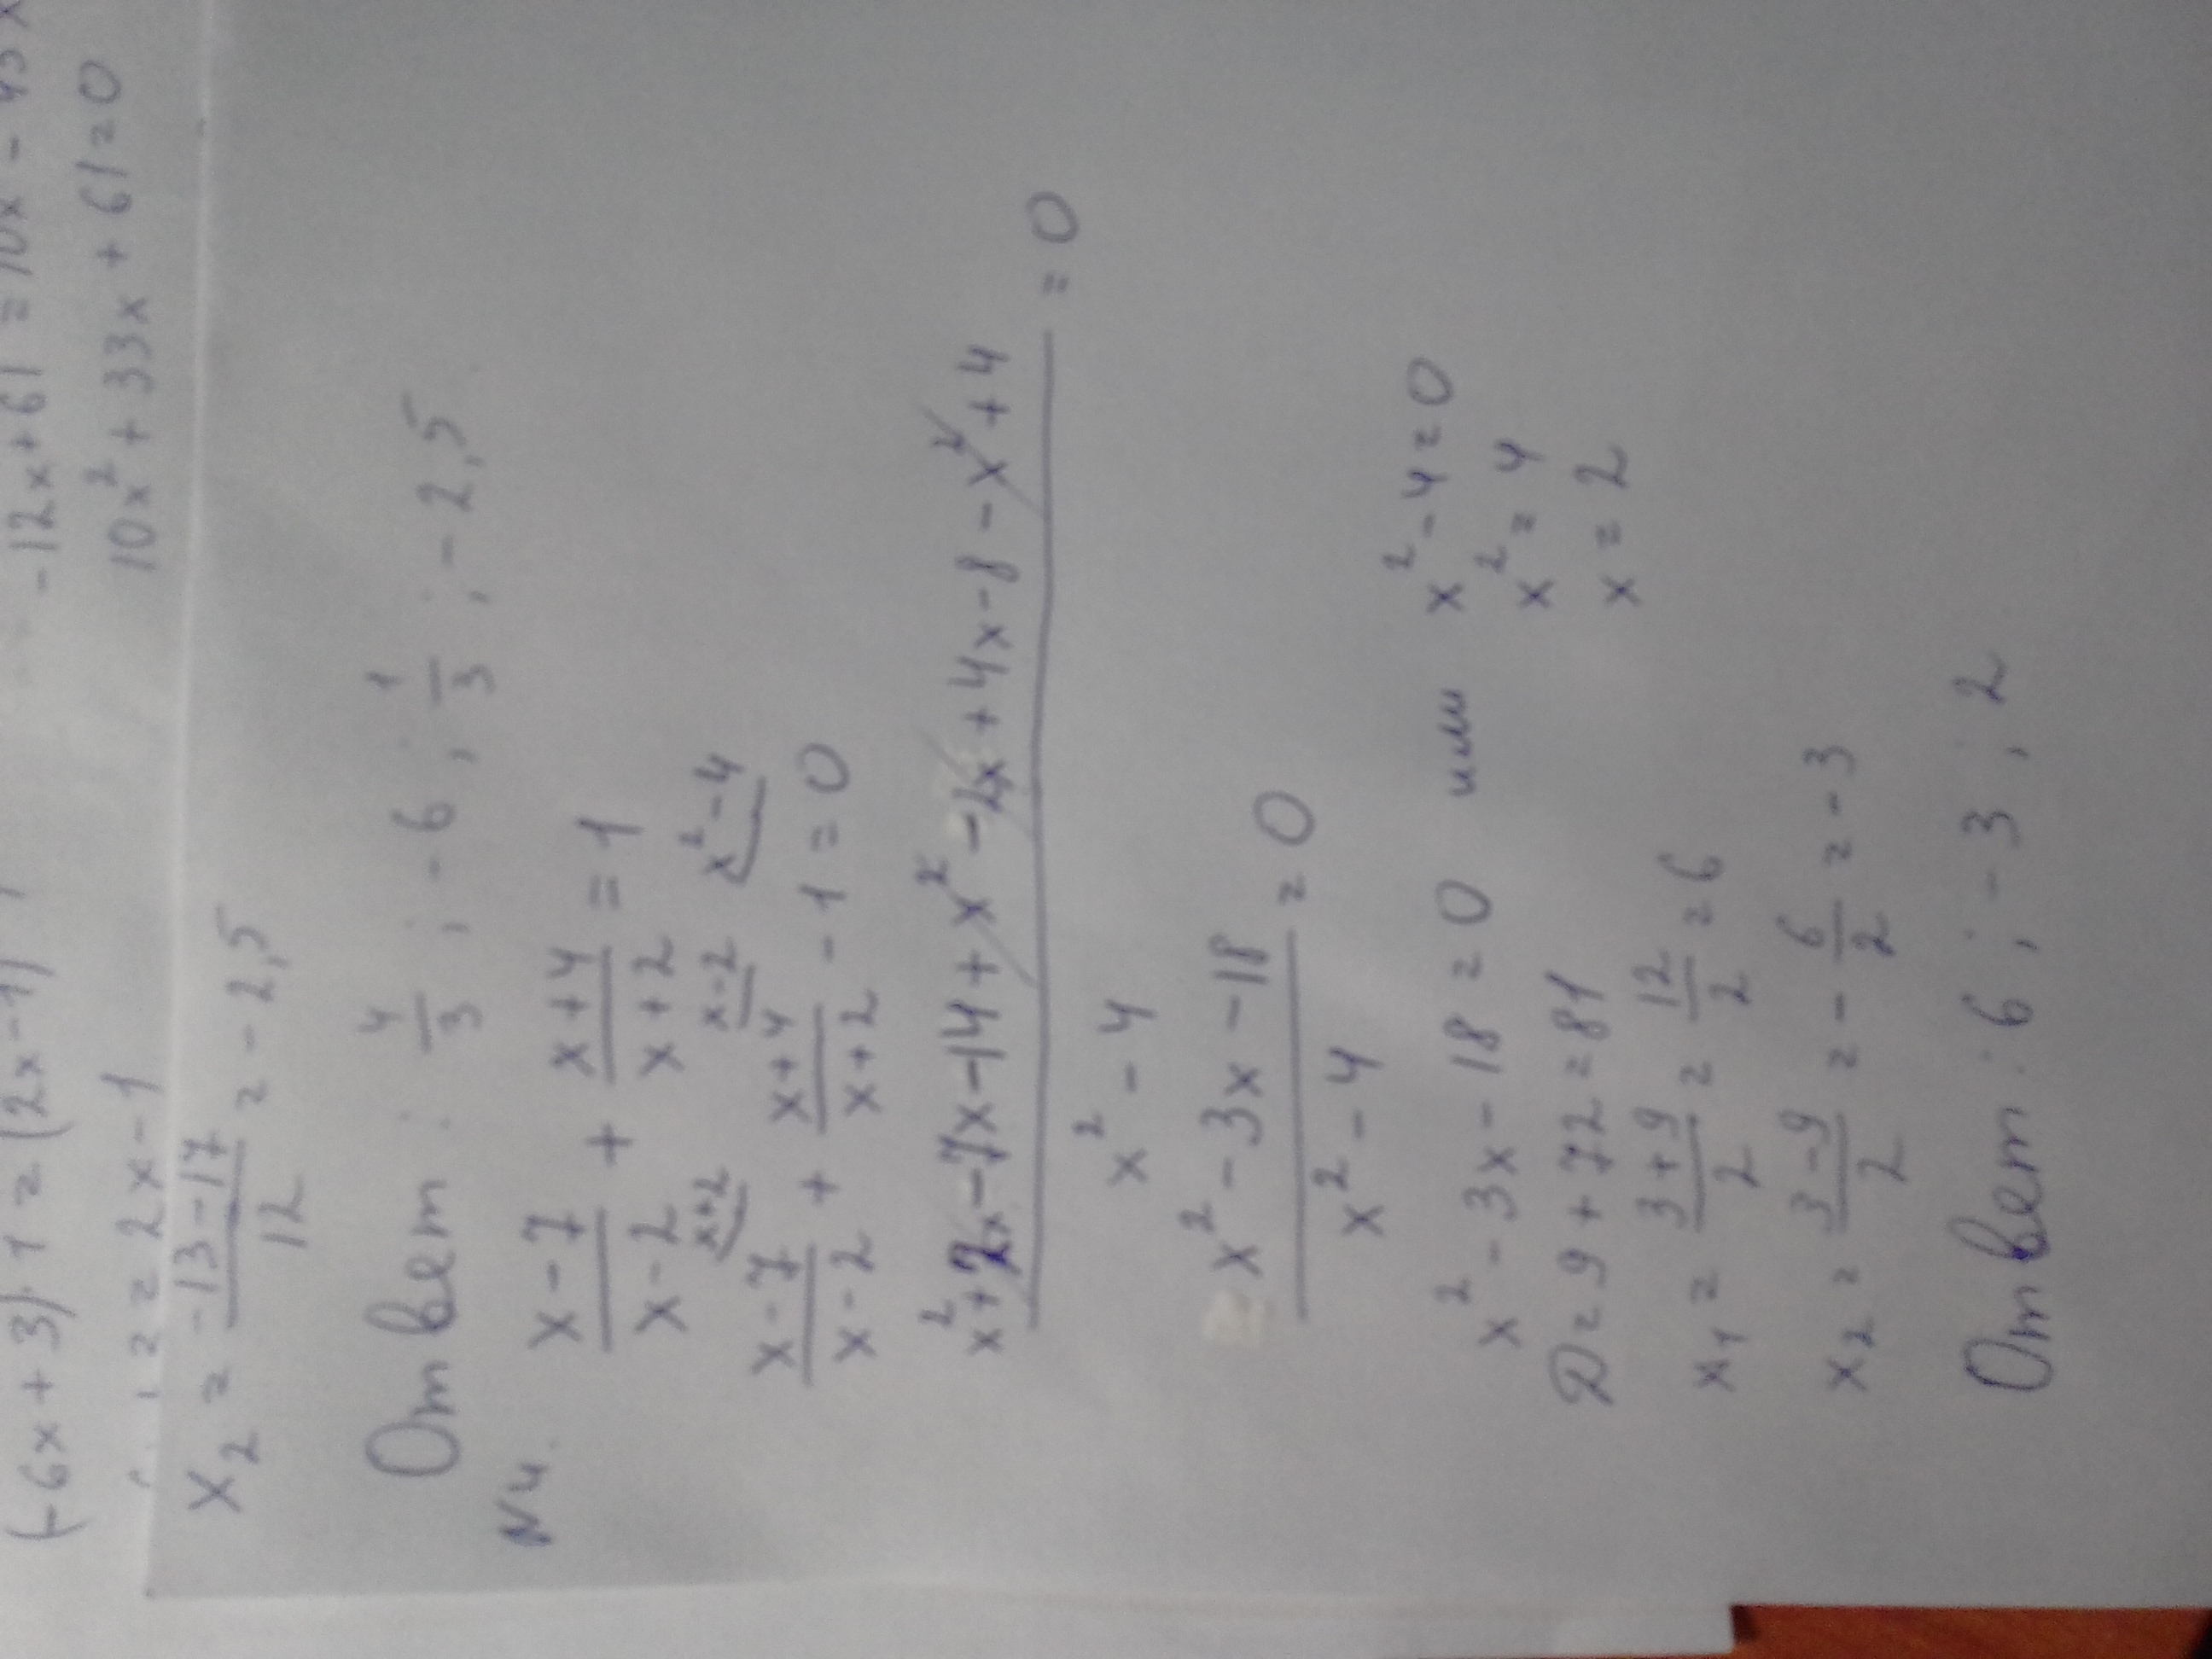 -12x+61 = 10x - 45x
10x² + 33x + 61 = 0
(-6x+3)·1 = (2x-1)
1 = 2x-1
x₂ = -13-17/12 = -2,5
Ответ: 4/3 ; -6 ; 1/3 ; -2,5.
N4.
x-7/x-2 + x+4/x+2 = 1
x+2 x-2 x²-4
x-7/x-2 + x+4/x+2 - 1 = 0
x²+2x-7x-14+x²-2x+4x-8-x²+4/x²-4 = 0
x²-3x-18/x²-4 = 0
x²-3x-18=0 или x²-4=0
D=9+72=81 x²=4
x₁ = 3+9/2 = 12/2 = 6 x=2
x₂ = 3-9/2 = -6/2 = -3
Ответ: 6 ; -3 ; 2